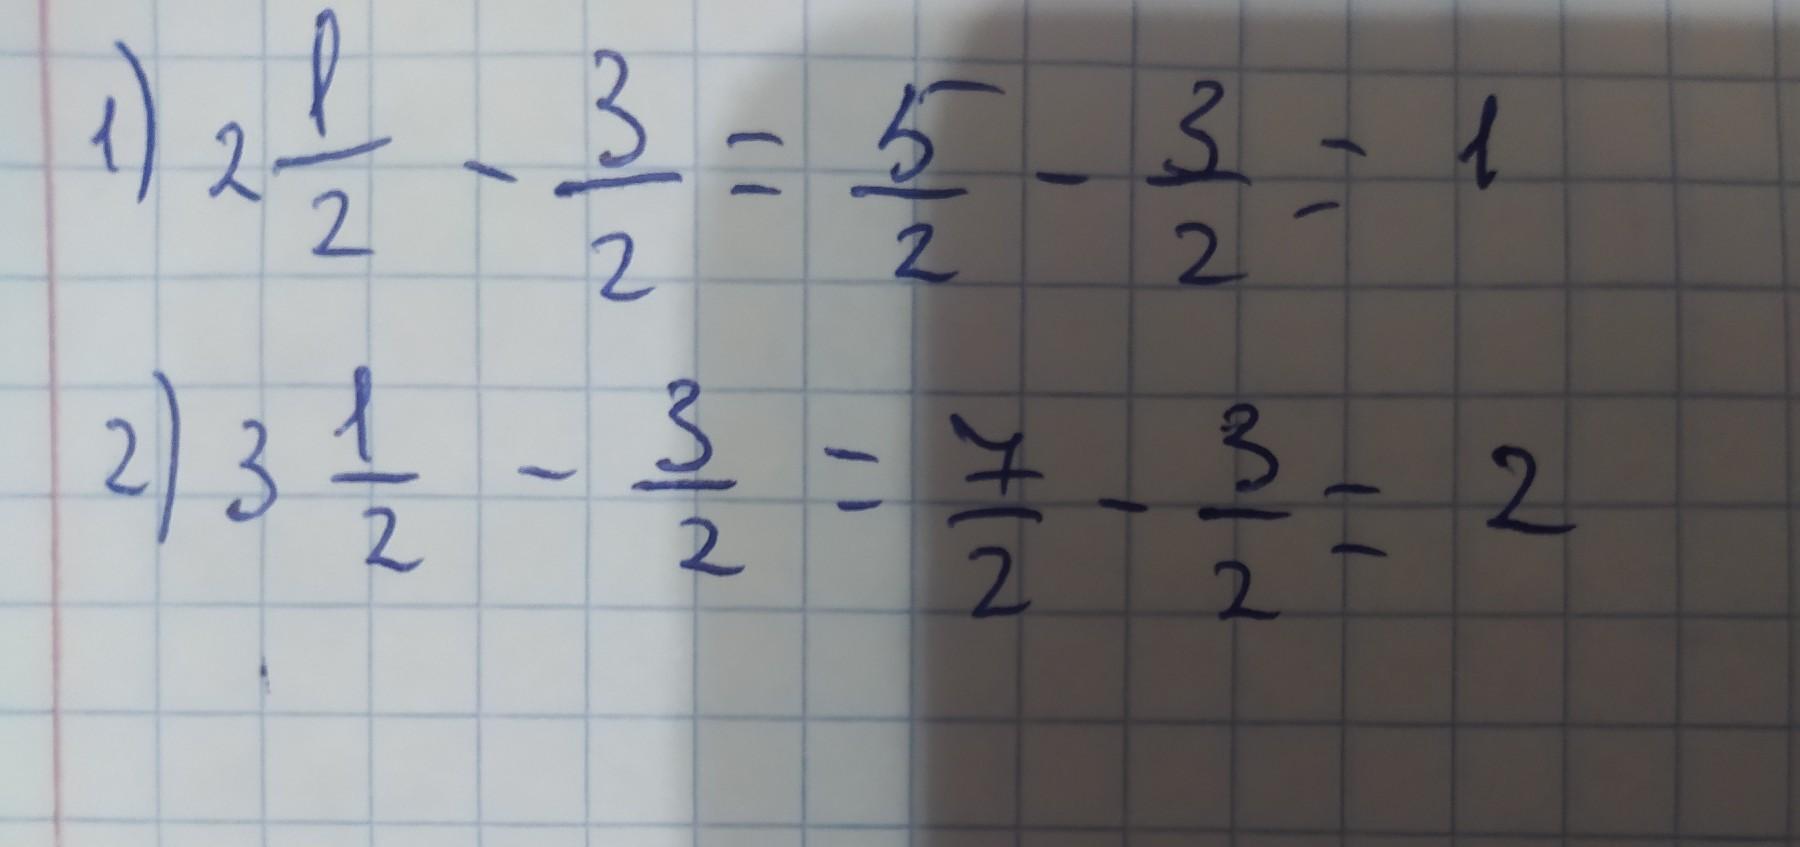 1) 2 1/2 - 3/2 = 5/2 - 3/2 = 1
2) 3 1/2 - 3/2 = 7/2 - 3/2 = 2